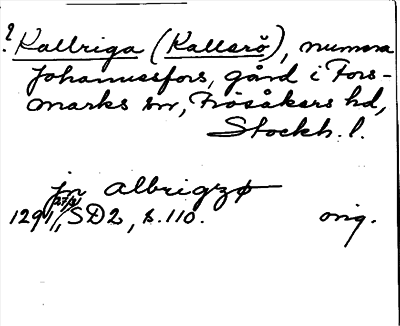 ? Kallriga (Kallerö), numera
Johannesfors, gård i Fors-
marks sn, Frösåkers hd,
Stockh. l.
jn albrigzø
1291 27/3, SD2, s. 110. orig.